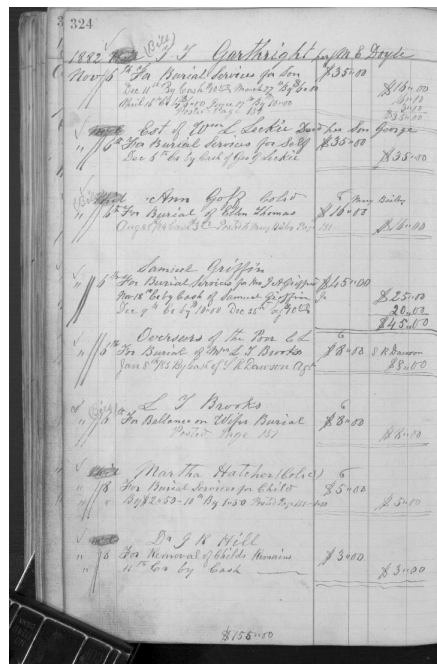 324
1882 (Bill) T T Garthright for M E Doyle
Nov 6th For Burial Services for Son $35"00
Dec 11th By Cash March 27th $16"00
April 15th By June 27th By 10"00
Posted Page 151 $35"00
Est of Wm L Leckie Deed his Son George
" 6th For Burial Services for Self $35"00
Dec 5th Co by Cash of Geo G Leckie $35"00
(Bill) Ann Goff Colid 6 Mary Bailey
" 6th For Burial of Ellen Thomas $16"00
Posted $16"00
Samuel Griffin
" 6th For Burial Services for Mr J A Griffin $45"00
Nov 18th Co by Cash of Samuel Griffin Jr $25"00
Dec 9th Co by 10"00 Dec 20"00
$45"00
Overseers of the Poor E L 6
" 6th For Burial of Mrs L T Brooks $8"00 S R Dawson
Jan 8th 1883 By Cash of S R Dawson Agt $8"00
(Bill) L T Brooks 6
" For Ballance on Wifes Burial $8"00
Posted Page 151 $8"00
Martha Hatcher (Colid) 6
" 8 For Burial Services for Child $5"00
" " By $2"50 - 10th By 1"50 Posted Page $5"00
Dr J K Hill
" 8 For Removal of Childs Remains $3"00
" 11th Co by Cash $3"00
$155"00